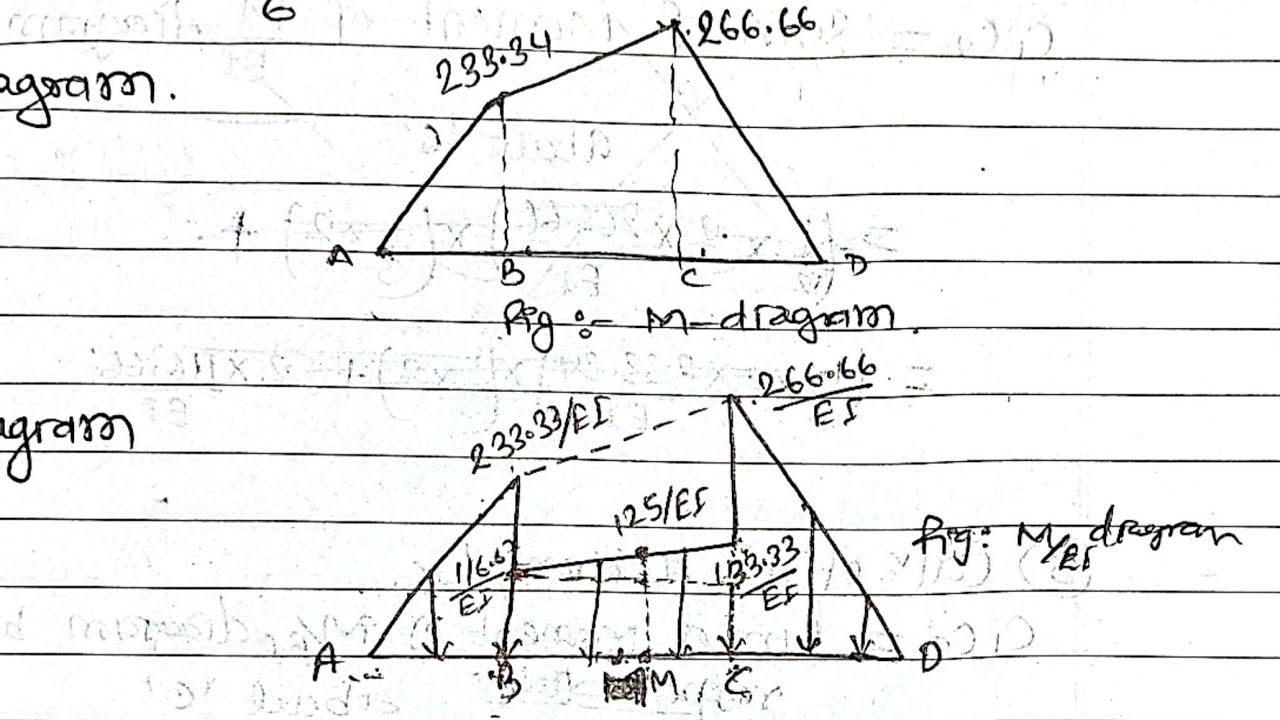 6
233.34
266.66
agram.
A B C D
Fig :- M-diagram.
266.66/EI
233.33/EI
agram
125/EI
116.67/EI
133.33/EI
Fig: M/EI diagram
A B M C D